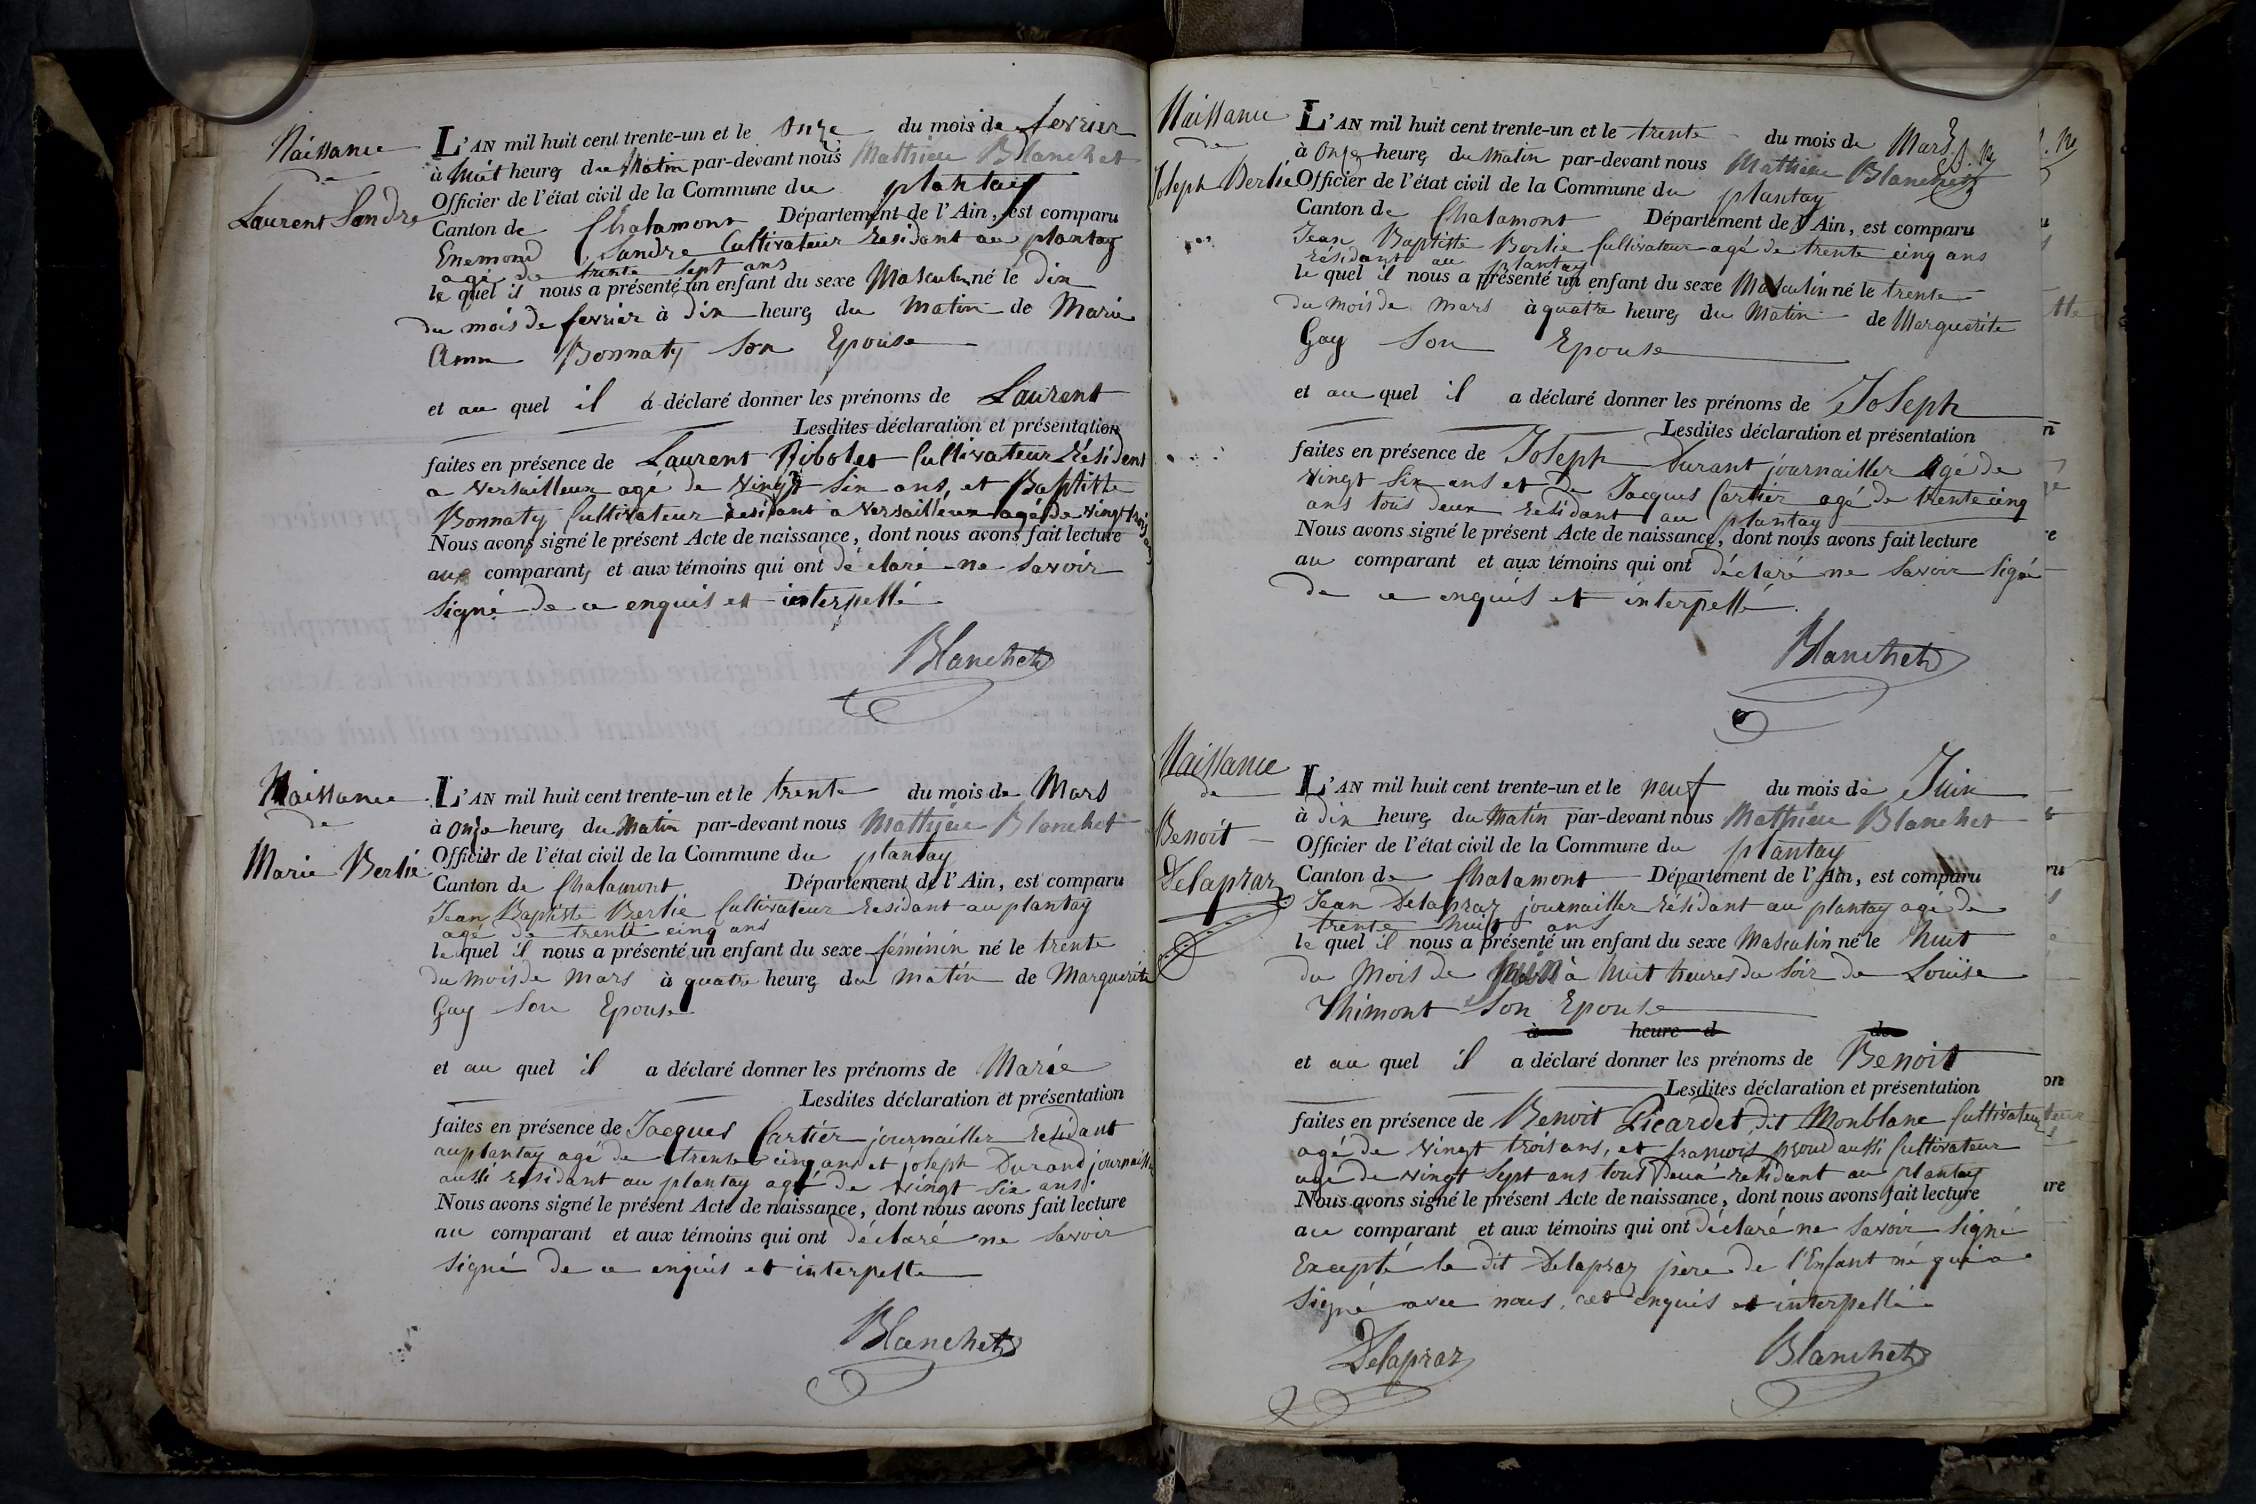 Naissance
de
Laurent Sandre
L'AN mil huit cent trente-un et le onze du mois de fevrier
à huit heures du Matin par-devant nous Mathieu Blanchet
Officier de l'état civil de la Commune du plantay
Canton de Chalamont Département de l'Ain, est comparu
Enemond Sandre Cultivateur residant au plantay
agé de trente sept ans
le quel il nous a présenté un enfant du sexe Masculin né le dix
du mois de fevrier à dix heures du Matin de Marie
Anne Bonnaty son Epouse
et au quel il a déclaré donner les prénoms de Laurent
Lesdites déclaration et présentation
faites en présence de Laurent Ribolet Cultivateur Résident
a Versailleux age de vingt six ans, et Baptiste
Bonnaty Cultivateur residant a Versailleux agé de vingt trois ans
Nous avons signé le présent Acte de naissance, dont nous avons fait lecture
aux comparants et aux témoins qui ont déclaré ne savoir
signé de ce enquis et interpellé
Blanchet
Naissance
de
Marie Bertié
L'AN mil huit cent trente-un et le trente du mois de Mars
à onze heures du Matin par-devant nous Mathieu Blanchet
Officier de l'état civil de la Commune du plantay
Canton de Chalamont Département de l'Ain, est comparu
Jean Baptiste Bertié Cultivateur residant au plantay
agé de trente cinq ans
le quel il nous a présenté un enfant du sexe féminin né le trente
du mois de mars à quatre heures du matin de Marguerite
Gay son Epouse
et au quel il a déclaré donner les prénoms de Marie
Lesdites déclaration et présentation
faites en présence de Jacques Cartier journailler residant
au plantay agé de trente cinq ans et joseph Durand journailler
aussi residant au plantay agé de vingt six ans.
Nous avons signé le présent Acte de naissance, dont nous avons fait lecture
au comparant et aux témoins qui ont déclaré ne savoir
signé de ce enquis et interpelle
Blanchet
Naissance
de
Joseph Bertié
L'AN mil huit cent trente-un et le trente du mois de Mars
à onze heures du Matin par-devant nous Mathieu Blanchet
Officier de l'état civil de la Commune du plantay
Canton de Chalamont Département de l'Ain, est comparu
Jean Baptiste Bertie Cultivateur agé de trente cinq ans
résidant au plantay
le quel il nous a présenté un enfant du sexe Masculin né le trente
du mois de mars à quatre heures du Matin de Marguerite
Gay son Epouse
et au quel il a déclaré donner les prénoms de Joseph
Lesdites déclaration et présentation
faites en présence de Joseph Durant journailler agé de
vingt six ans et de Jacques Cartier agé de trente cinq
ans tous deux residant au plantay
Nous avons signé le présent Acte de naissance, dont nous avons fait lecture
au comparant et aux témoins qui ont déclaré ne savoir signé
de ce enquis et interpellé.
Blanchet
Naissance
de
Benoit
Delapraz
L'AN mil huit cent trente-un et le neuf du mois de Juin
à dix heures du Matin par-devant nous Mathieu Blanchet
Officier de l'état civil de la Commune du plantay
Canton de Chalamont Département de l'Ain, est comparu
Jean Delapraz journailler résidant au plantay age de
trente huit ans
le quel il nous a présenté un enfant du sexe Masculin né le huit
du Mois de Juin à huit heures du soir de Louise
Thimont son Epouse
à heure d de
et au quel il a déclaré donner les prénoms de Benoit
Lesdites déclaration et présentation
faites en présence de Benoit Picardet dit Monblanc Cultivateur
agé de vingt trois ans, et francois proud aussi Cultivateur
agé de vingt sept ans tous deux residant au plantay
Nous avons signé le présent Acte de naissance, dont nous avons fait lecture
au comparant et aux témoins qui ont déclaré ne savoir signé
Excepté le dit Delapraz père de l'Enfant né qui a
signé avec nous, enquis et interpellé
Delapraz
Blanchet